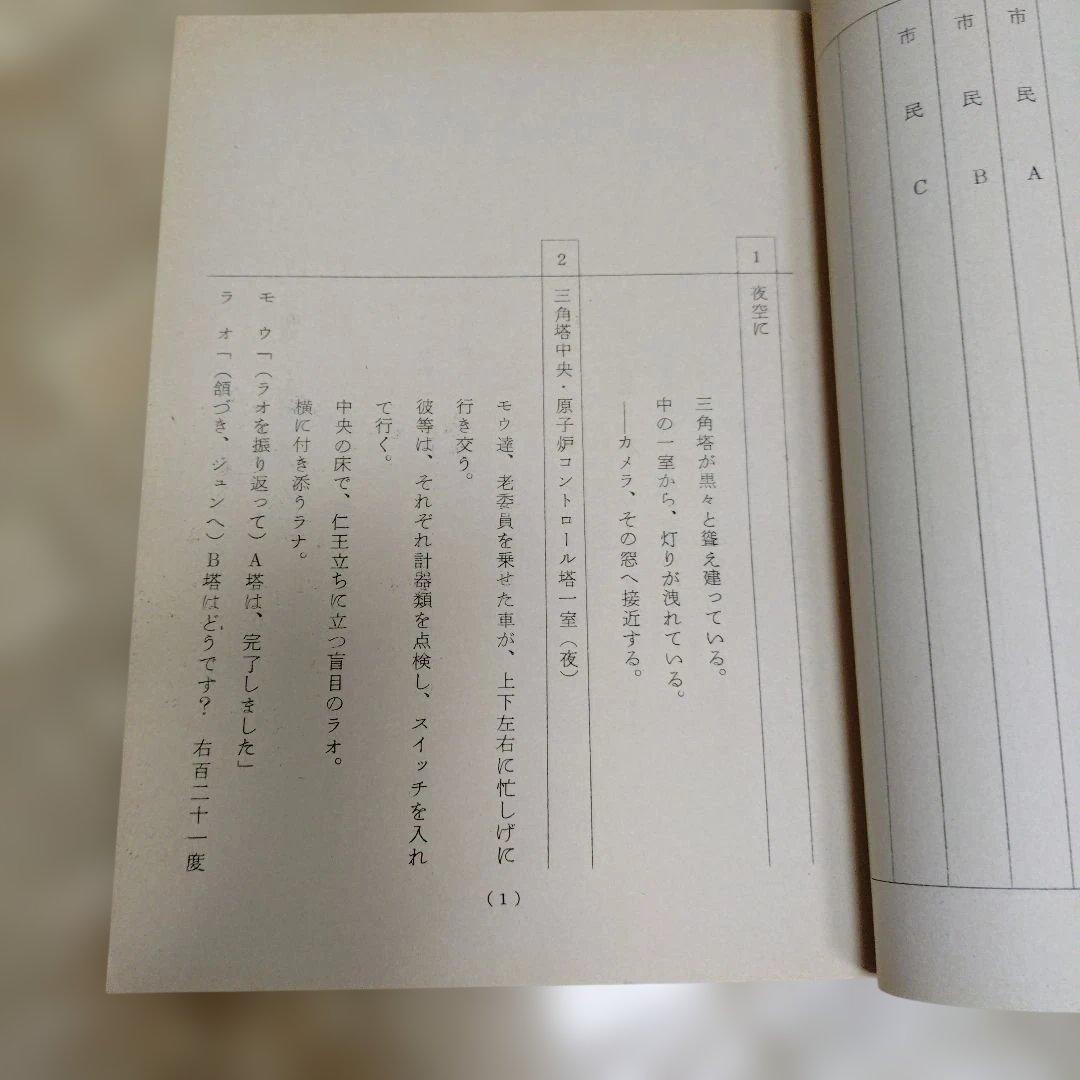 市民A
市民B
市民C
1 夜空に
三角塔が黒々と聳え建っている。
中の一室から、灯りが洩れている。
――カメラ、その窓へ接近する。
2 三角塔中央・原子炉コントロール塔一室（夜）
モウ達、老委員を乗せた車が、上下左右に忙しげに
行き交う。
彼等は、それぞれ計器類を点検し、スイッチを入れ
て行く。
中央の床で、仁王立ちに立つ盲目のラオ。
横に付き添うラナ。
モウ「（ラオを振り返って）A塔は、完了しました」
ラオ「（頷づき、ジュンへ）B塔はどうです？　右百二十一度
（1）